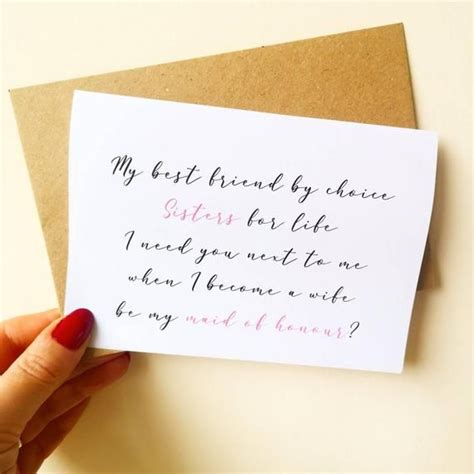 My best friend by choice
Sisters for life
I need you next to me
when I become a wife
be my maid of honour?